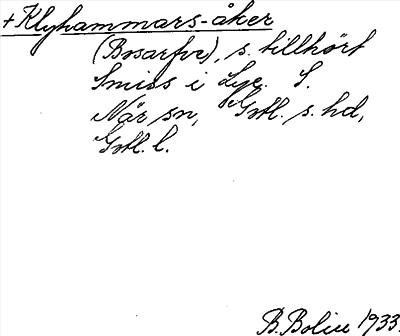 +Klyhammars-åker
(Bosarfve), s. tillhört
Smiss i Lye. S.
När sn, Gotl. s. hd,
Gotl. l.
B. Bolin 1933.